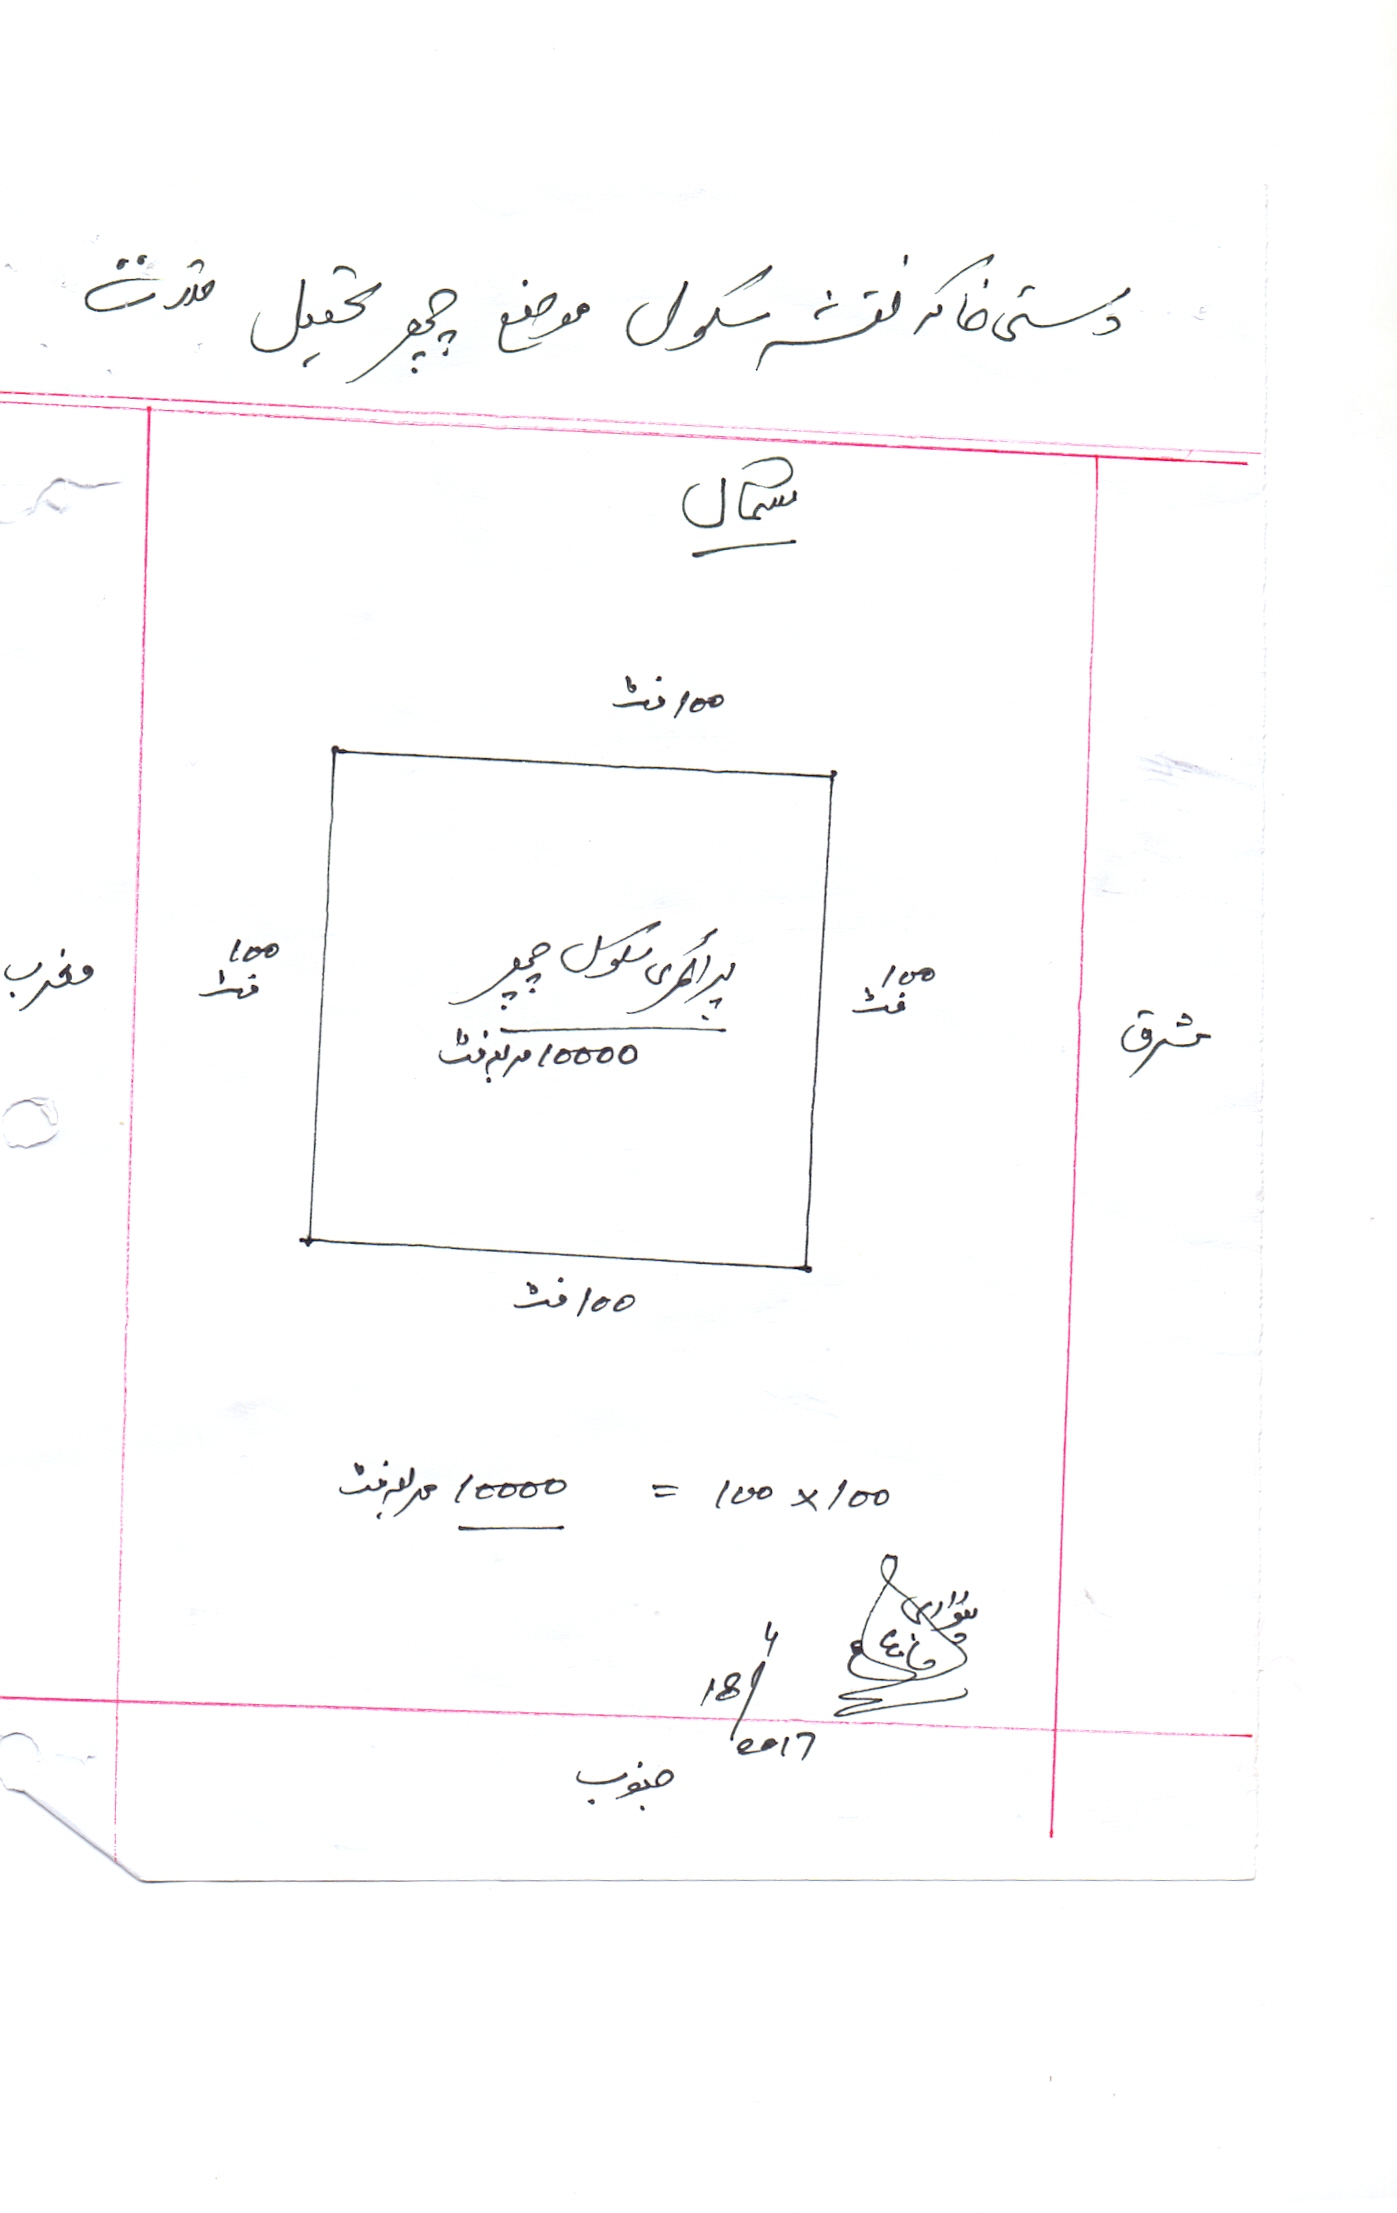 دستی خاکہ نقشہ سکول موضع چمپر تحصیل
شمال
100 فٹ
مغرب
100
فٹ
پرائمری سکول چمپر
10000 مربع فٹ
100
فٹ
مشرق
100 فٹ
100 x 100 = 10000 مربع فٹ
پٹواری
18/4
2017
جنوب